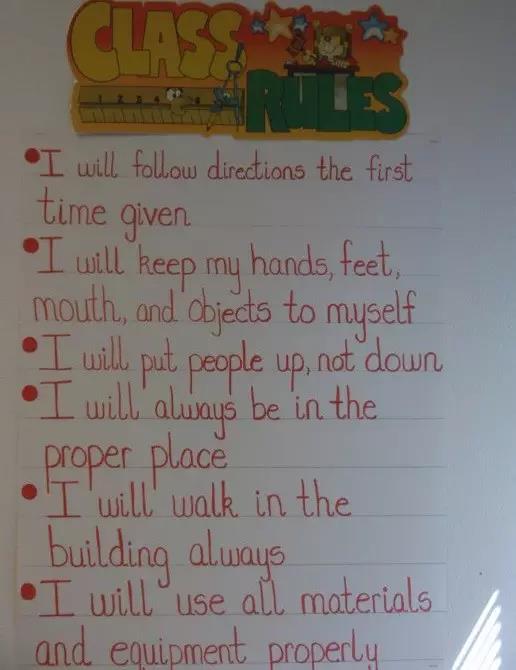 CLASS
RULES
• I will follow directions the first
time given
• I will keep my hands, feet,
mouth, and objects to myself
• I will put people up, not down
• I will always be in the
proper place
• I will walk in the
building always
• I will use all materials
and equipment properly